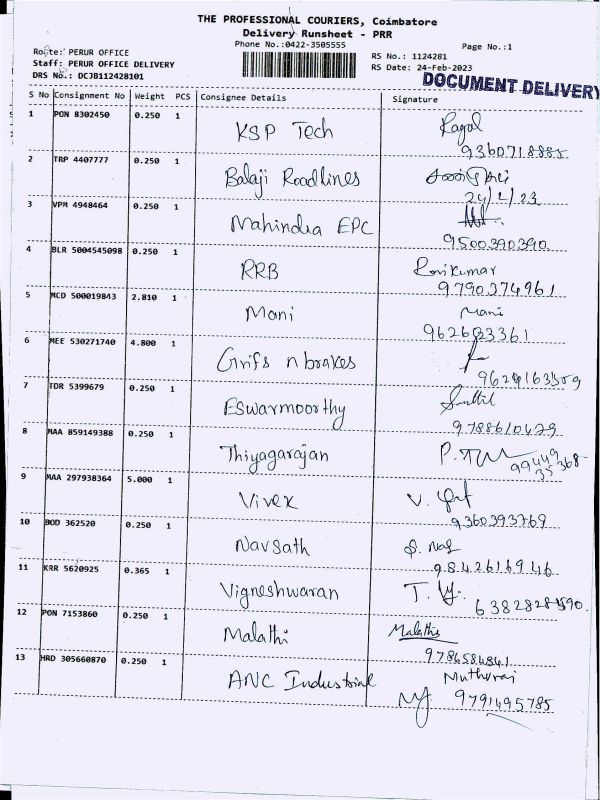 THE PROFESSIONAL COURIERS, Coimbatore
Delivery Runsheet - PRR
Phone No.:0422-3505555
Page No.:1
Route: PERUR OFFICE
RS No.: 1124281
Staff: PERUR OFFICE DELIVERY
RS Date: 24-Feb-2023
DRS No.: DCJB112428101
DOCUMENT DELIVERY
S No Consignment No Weight PCS Consignee Details Signature
1 PON 8302450 0.250 1 KSP Tech
9360718885
2 TRP 4407777 0.250 1 Balaji Roadlines
24/2/23
3 VPM 4948464 0.250 1 Mahindra EPC
9500390390
4 BLR 5004545098 0.250 1 RRB Ravikumar
9790374961
5 MCD 500019843 2.810 1 Mani Mani
6 MEE 530271740 4.800 1 Grifs n brakes
7 TDR 5399679 0.250 1 Eswarmoorthy Senthil
9788610479
8 MAA 859149388 0.250 1 Thiyagarajan
99449
35368
9 MAA 297938364 5.000 1 Vivek
9360393769
10 BOD 362520 0.250 1 Navsath
9842616946
11 KRR 5620925 0.365 1 Vigneshwaran
12 PON 7153860 0.250 1 Malathi Malathi
9786584841
13 HRD 305660870 0.250 1 ANC Industrial Muthuraj
9791495785